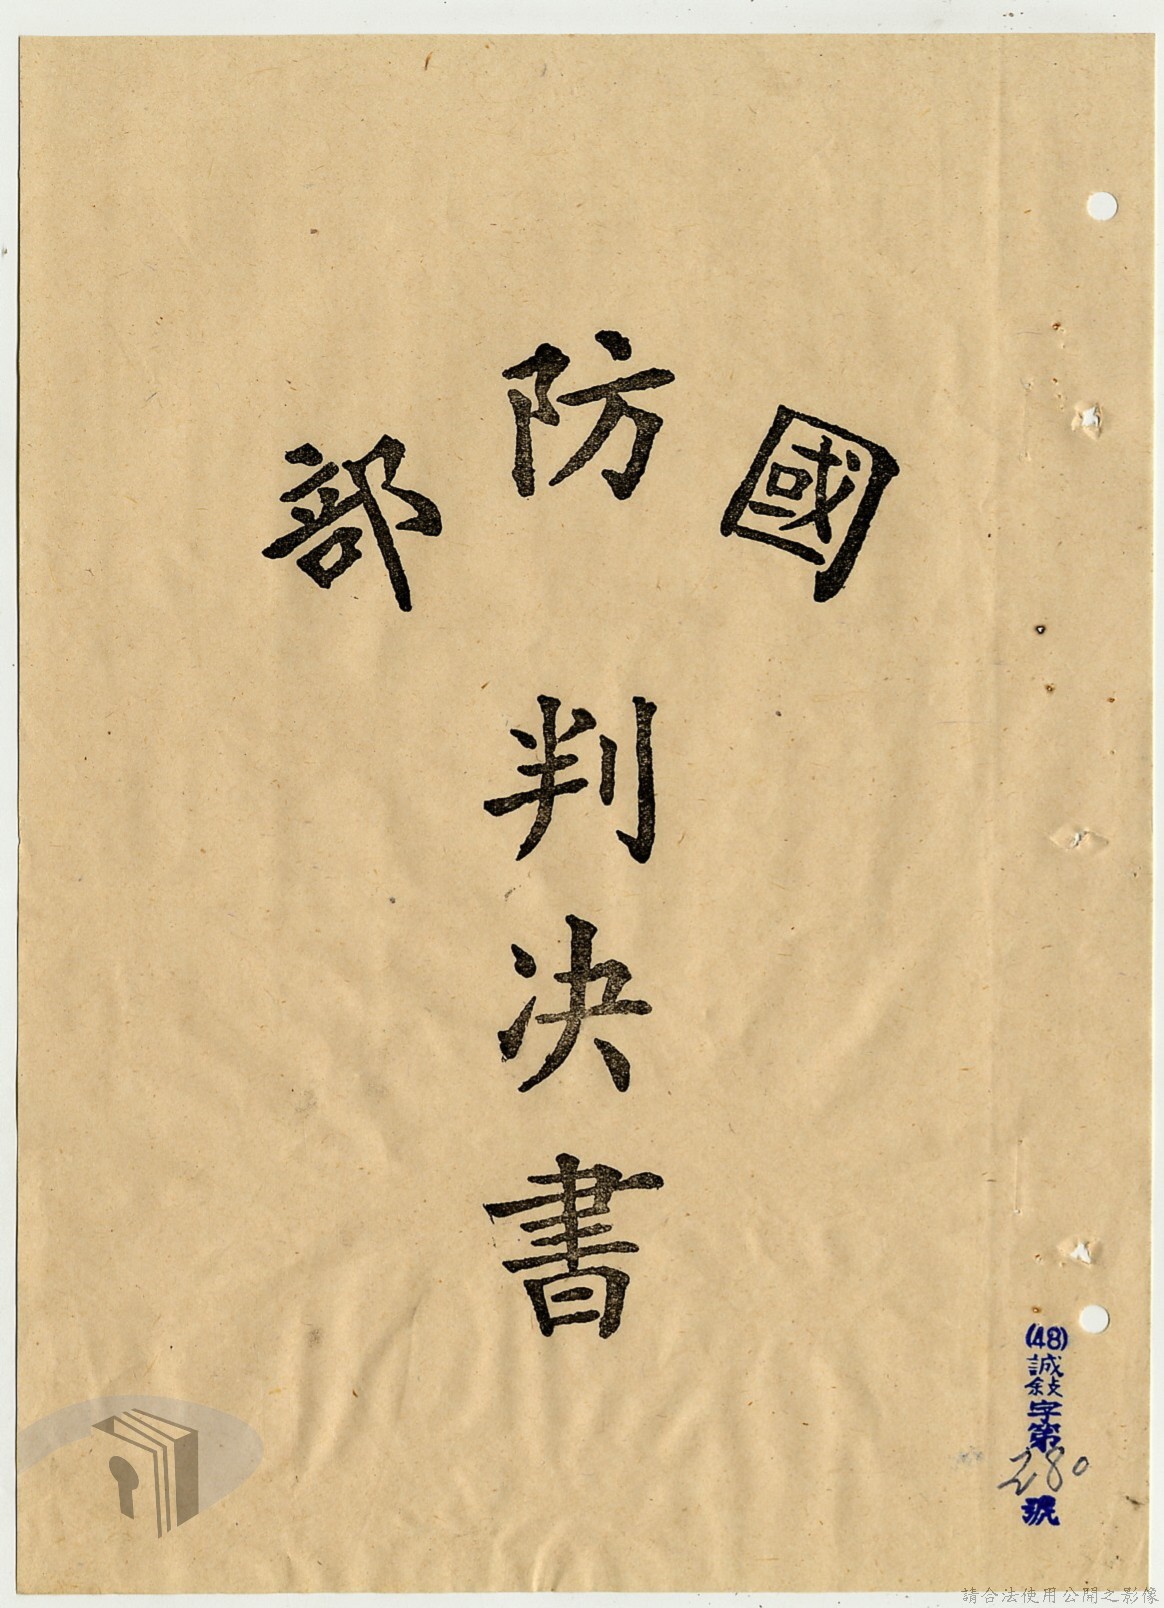 國防部
判決書
(48)誠敍字第280號
請合法使用公開之影像